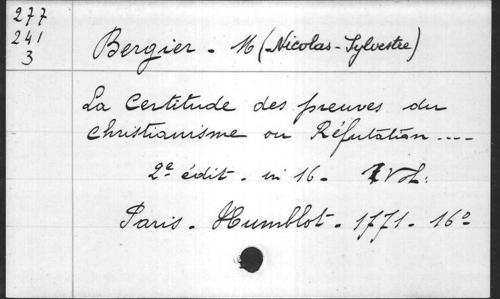 277
241
3
Bergier - M (Nicolas-Sylvestre)
La Certitude des preuves du
christianisme ou Réfutation ....
2e édit - in 16 - 1 Vol.
Paris - Humblot - 1771 - 16o